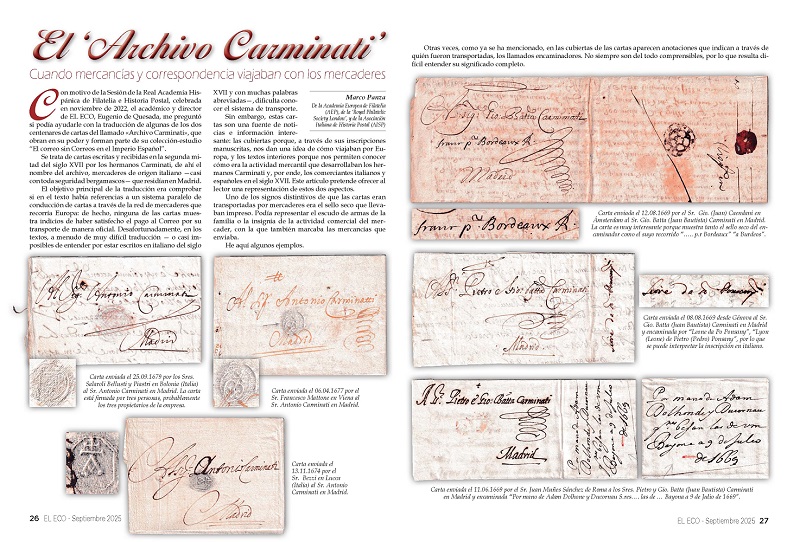 El 'Archivo Carminati'
Cuando mercancías y correspondencia viajaban con los mercaderes
Con motivo de la Sesión de la Real Academia His-
pánica de Filatelia e Historia Postal, celebrada
en noviembre de 2022, el académico y director
de EL ECO, Eugenio de Quesada, me preguntó
si podía ayudarle con la traducción de algunas de los dos
centenares de cartas del llamado «Archivo Carminati», que
obran en su poder y forman parte de su colección-estudio
"El correo sin Correos en el Imperio Español".
Se trata de cartas escritas y recibidas en la segunda mi-
tad del siglo XVII por los hermanos Carminati, de ahí el
nombre del archivo, mercaderes de origen italiano —casi
con toda seguridad bergamascos— que residían en Madrid.
El objetivo principal de la traducción era comprobar
si en el texto había referencias a un sistema paralelo de
conducción de cartas a través de la red de mercaderes que
recorría Europa: de hecho, ninguna de las cartas mues-
tra indicios de haber satisfecho el pago al Correo por su
transporte de manera oficial. Desafortunadamente, en los
textos, a menudo de muy difícil traducción — o casi im-
posibles de entender por estar escritos en italiano del siglo
XVII y con muchas palabras
abreviadas—, dificulta cono-
cer el sistema de transporte.
Sin embargo, estas car-
tas son una fuente de noti-
cias e información intere-
sante: las cubiertas porque, a través de sus inscripciones
manuscritas, nos dan una idea de cómo viajaban por Eu-
ropa, y los textos interiores porque nos permiten conocer
cómo era la actividad mercantil que desarrollaban los her-
manos Carminati y, por ende, los comerciantes italianos y
españoles en el siglo XVII. Este artículo pretende ofrecer al
lector una representación de estos dos aspectos.
Uno de los signos distintivos de que las cartas eran
transportadas por mercaderes era el sello seco que lleva-
ban impreso. Podía representar el escudo de armas de la
familia o la insignia de la actividad comercial del mer-
cader, con la que también marcaba las mercancías que
enviaba.
He aquí algunos ejemplos.
Marco Panza
De la Academia Europea de Filatelia
(AEP), de la "Royal Philatelic
Society London", y de la Asociación
Italiana de Historia Postal (AISP)
Antonio Carminati
Madrid
Carta enviada el 25.09.1679 por los Sres.
Salaroli Bellusti y Piastri en Bolonia (Italia)
al Sr. Antonio Carminati en Madrid. La carta
está firmada por tres personas, probablemente
los tres propietarios de la empresa.
Antonio Carminatti
Madrid
Carta enviada el 06.04.1677 por el
Sr. Francesco Mattone en Viena al
Sr. Antonio Carminati en Madrid.
Antonio Carminati
Madrid
Carta enviada el
13.11.1674 por el
Sr. Bezzi en Lucca
(Italia) al Sr. Antonio
Carminati en Madrid.
26 EL ECO - Septiembre 2025
Otras veces, como ya se ha mencionado, en las cubiertas de las cartas aparecen anotaciones que indican a través de
quién fueron transportadas, los llamados encaminadores. No siempre son del todo comprensibles, por lo que resulta di-
fícil entender su significado completo.
Batta Carminati
Bordeaux
Madrid
Bordeaux
Carta enviada el 12.08.1669 por el Sr. Gio. (Juan) Coendani en
Ámsterdam al Sr. Gio. Batta (Juan Bautista) Carminati en Madrid.
La carta es muy interesante porque muestra tanto el sello seco del en-
caminador como el suyo recorrido "..... p.r Bordeaux" "a Burdeos".
Pietro e Gio: batta Carminati
Madrid
Carta enviada el 08.08.1669 desde Génova al Sr.
Gio. Batta (Juan Bautista) Carminati en Madrid
y encaminada por "Leone de Po Ponsany", "Lyon
(Leone) de Pietro (Pedro) Ponsany", por lo que
se puede interpretar la inscripción en italiano.
Pietro è Gio: Batta Carminati
Madrid
Por mano de Adam
Dolhonde y Ducornau
Bayona a 9 de Julio
de 1669
Carta enviada el 11.06.1669 por el Sr. Juan Muñes Sánchez de Roma a los Sres. Pietro y Gio. Batta (Juan Bautista) Carminati
en Madrid y encaminada "Por mano de Adam Dolhone y Ducornau S.res.... las de ... Bayona a 9 de Julio de 1669".
EL ECO - Septiembre 2025 27